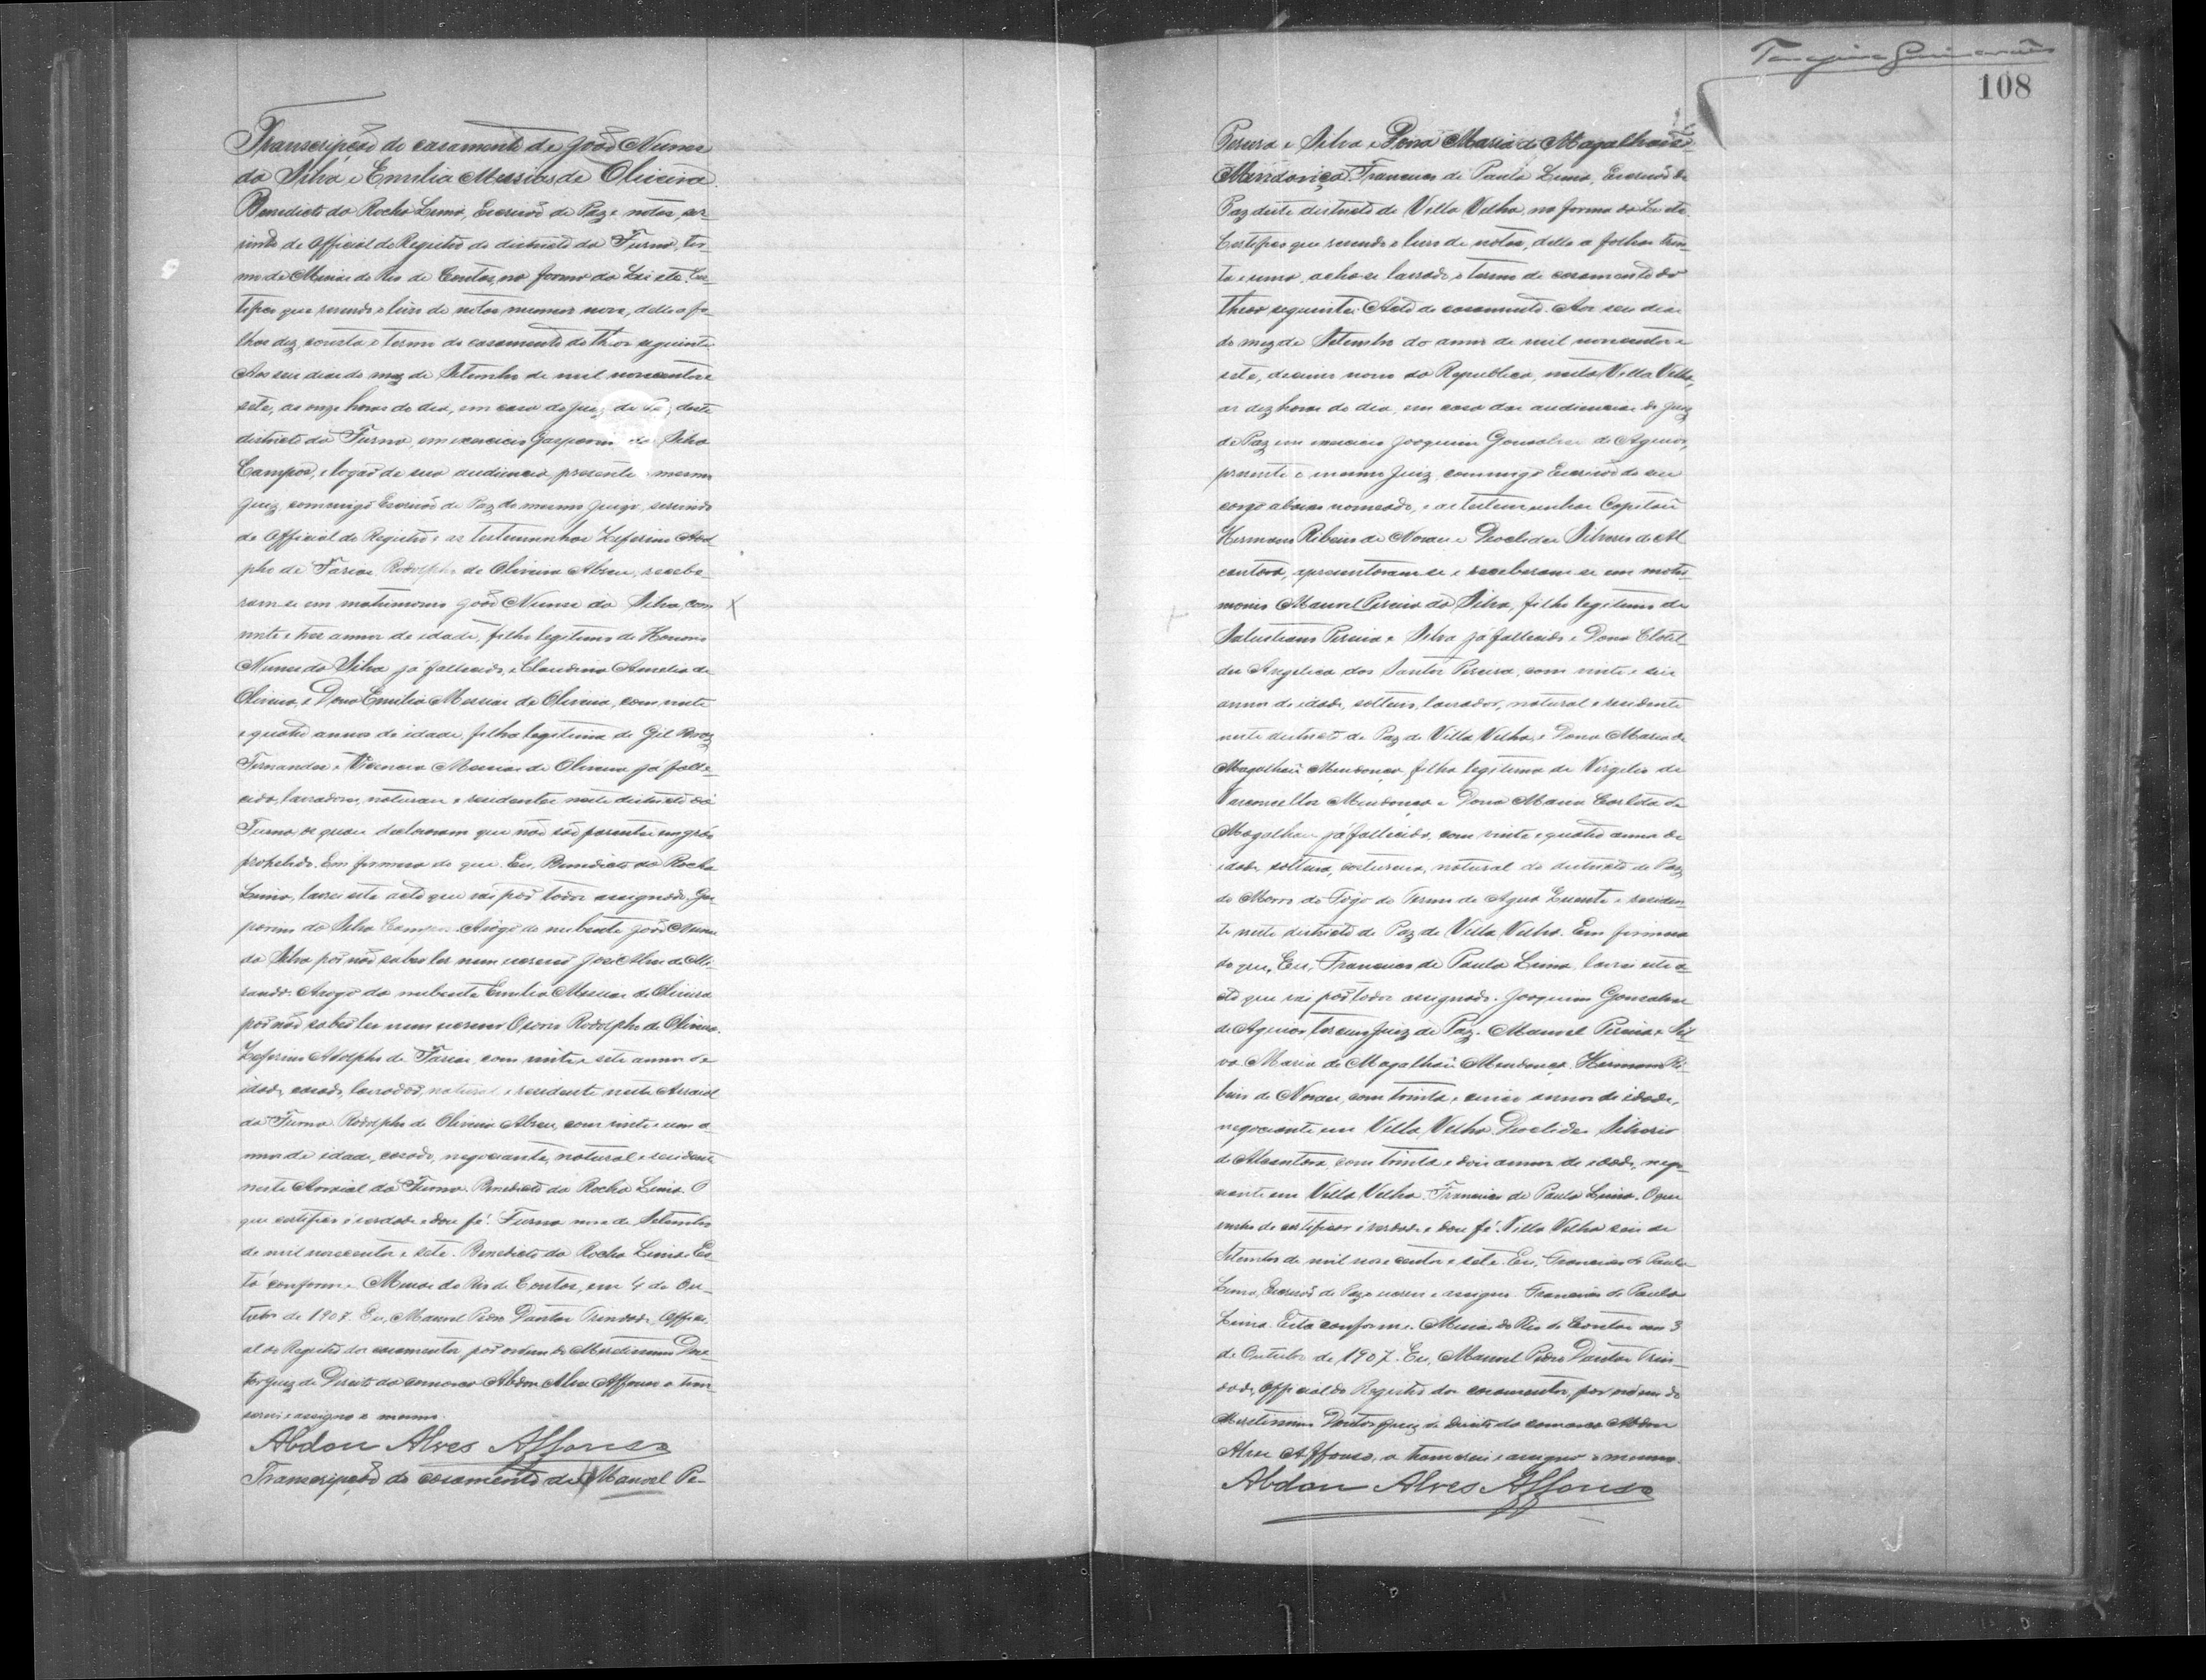 Transcripção do casamento de João Nunes
da Silva, e Emilia Messias de Oliveira.
Benedicto da Rocha Lima, Escrivão de Paz e notas, ser-
vindo de Official do Registro do districto da Furna, ter-
mo de Minas do Rio de Contas, na forma da Lei etc. Cer-
tifico que revendo o livro de notas numero nove, delle a fo-
lhas dez, consta o termo de casamento do theor seguinte
Aos seis dias do mez de Setembro de mil novecentos e
sete, as onze horas do dia, em casa do Juiz de Paz deste
districto da Furna, em exercicio Gasparino da Silva
Campos, e logar de sua audiencia, presente o mesmo
Juiz, commigo Escrivão de Paz do mesmo Juizo, servindo
de Official do Registro e as testemunhas Zeferino Adol
pho de Farias Rodolpho de Oliveira Abreu, recebe-
ram-se em matrimonio João Nunes da Silva, com
vinte e tres annos de idade, filho legitimo de Honorio
Nunes da Silva já fallecido, e Claudina Amelia de
Oliveira, e Dona Emilia Messias de Oliveira, com vinte
e quatro annos de idade, filha legitima de Gil Braz
Fernandes e Messias de Oliveira já falle-
cido, lavradores, naturaes e residentes neste districto da
Furna, os quaes declararam que não são parentes em gráo
prohebido. Em firmeza do que. Eu, Benedicto da Rocha
Lima, lavrei este acto que vai por todos assignado. Gas
parino da Silva Campos. Arôgo do nubente João Nunes
da Silva por não saber ler nem escrever José Alves de Mi-
randa. Arogo da nubente Emilia Messias de Oliveira
por não saber ler nem escrever Rodolpho de Oliveira.
Zeferino Adolpho de Farias, com vinte e sete annos de
idade, casado, lavrador, natural e residente neste Arraial
da Furna. Rodolpho de Oliveira Abreu, com vinte e um a-
nnos de idade, casado, negociante, natural e residente
neste Arraial da Furna. Benedicto da Rocha Lima. O
que certifico é verdade e dou fé. Furna nove de Setembro
de mil novecentos e sete. Benedicto da Rocha Lima. Es-
tá conforme. Minas do Rio de Contas, em 4 de Ou-
tubro de 1907. Eu, Manoel Pedro Dantas Trindade, Offici-
al do Registro dos casamentos por ordem do Meretissimo Dou-
tor Juiz de Direito da comarca Abdon Alves Affonso a trans-
crevi e assigna o mesmo.
Abdon Alves Affonso
Transcripção do casamento de Manoel Pe-
108
Pereira e Silva e Dona Maria de Magalhães
Mendonça. Francisco de Paula Lima, Escrivão de
Paz deste districto de Villa Velha, na forma da Lei etc.
Certifico que revendo o livro de notas, delle a folhas trin-
ta e uma, acha-se lavrado o termo de casamento do
theor seguinte: Acto de casamento. Aos seis dias
do mez de Setembro do anno de mil novecentos e
sete, decimo nono da Republica, nesta Villa Velha,
as dez horas do dia, em casa das audiencias do Juiz
de Paz em exercicio Joaquim Gonsalves de Aguiar,
presente o mesmo Juiz, commigo Escrivão de seu
cargo abaixo nomeado, e as testemunhas Capitão
Hermano Ribeiro de Novaes e Deoclides Silverio de Al
cantara, apresentaram-se e receberam-se em matri-
monio Manoel Pereira da Silva, filho legitimo de
Salustiano Pereira e Silva já fallecido e Dona Clotil-
des Angelica dos Santos Pereira, com vinte e seis
annos de idade, solteiro, lavrador, natural e residente
neste districto de Paz de Villa Velha, e Dona Maria de
Magalhães Mendonça filha legitima de Virgilio de
Vasconcellos Mendonça e Dona Maria de
Magalhães já fallecido, com vinte e quatro annos de
idade, solteira, costureira, natural do districto de Paz
do Morro do Fôgo do Termo de Agua Quente e residen-
te neste districto de Paz de Villa Velha. Em firmeza
do que, Eu, Francisco de Paula Lima, lavrei este a-
cto que vai por todos assignado. Joaquim Gonsalves
de Aguiar, terceiro Juiz de Paz. Manoel Pereira e Sil
va Maria de Magalhães Mendonça. Hermano Ri-
beiro de Novaes, com trinta e cinco annos de idade,
negociante em Villa Velha. Deoclides Silverio
de Alcantara, com trinta e dois annos de idade, nego-
ciante em Villa Velha. Francisco de Paula Lima. O que
venho de certificar é verdade e dou fé. Villa Velha seis de
Setembro de mil novecentos e sete. Eu, Francisco de Paula
Lima, Escrivão de Paz o escrevi e assigno. Francisco de Paula
Lima. Está conforme. Minas do Rio de Contas em 3
de Outubro de 1907. Eu, Manoel Pedro Dantas Trin-
dade, Official do Registro dos casamentos, por ordem do
Meretissimo Doutor Juiz de Direito da comarca Abdon
Alves Affonso, a transcrevi e assigna o mesmo.
Abdon Alves Affonso